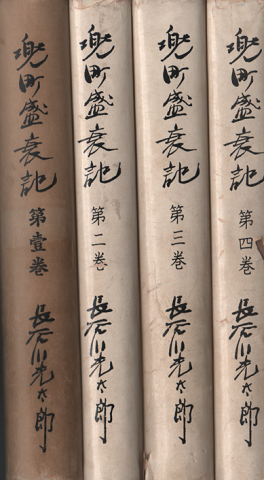 兜町盛衰記
第壹巻
長谷川光太郎
兜町盛衰記
第二巻
長谷川光太郎
兜町盛衰記
第三巻
長谷川光太郎
兜町盛衰記
第四巻
長谷川光太郎